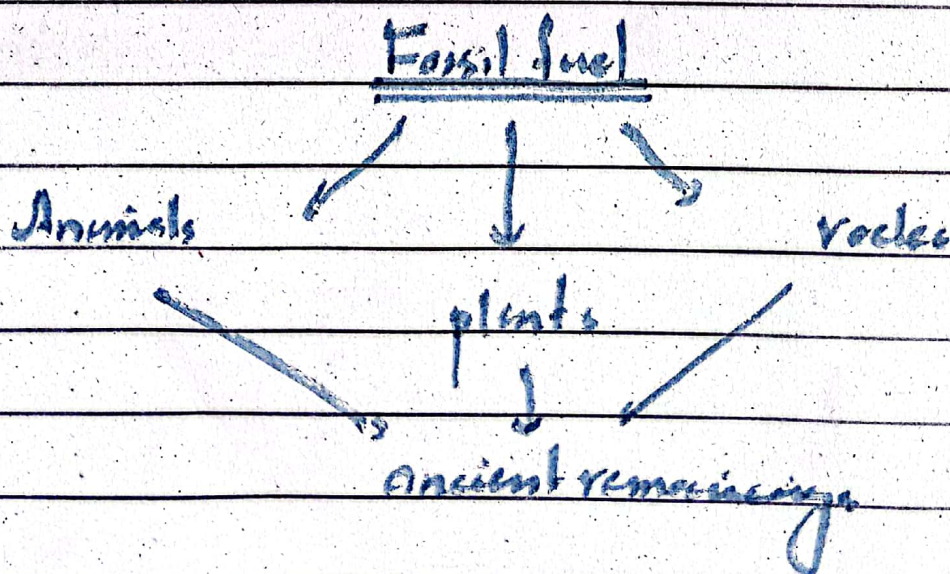 Fossil fuel
Animals
plants
Ancient remainings